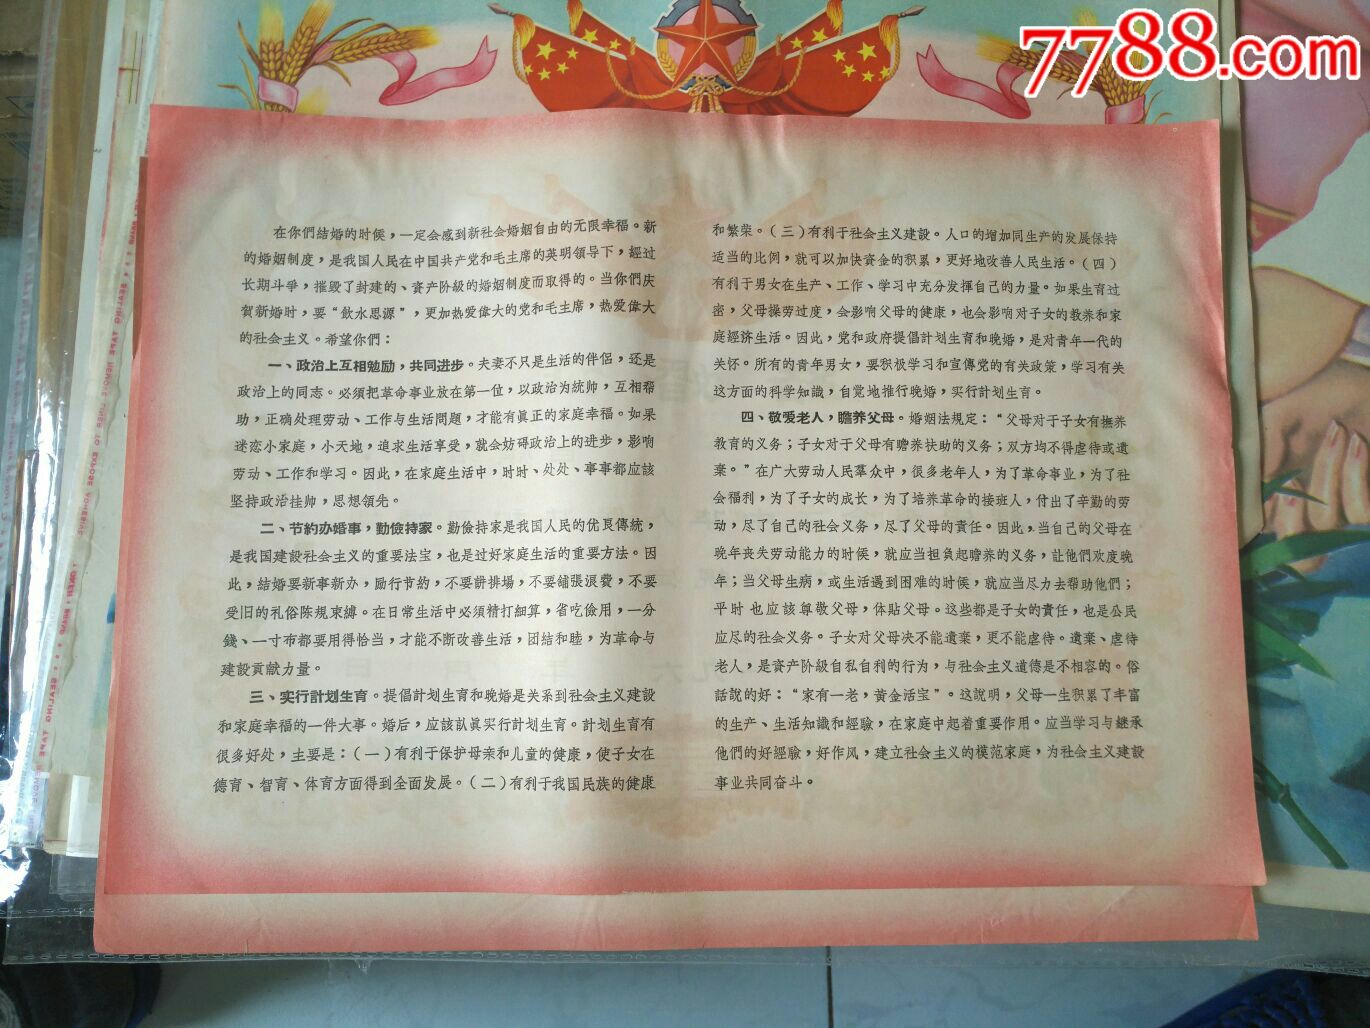 7788.com
在你們結婚的时候，一定会感到新社会婚姻自由的无限幸福。新
的婚姻制度，是我国人民在中国共产党和毛主席的英明領导下，經过
长期斗爭，摧毁了封建的、資产阶級的婚姻制度而取得的。当你們庆
賀新婚时，要“飲水思源”，更加热爱偉大的党和毛主席，热爱偉大
的社会主义。希望你們：
一、政治上互相勉励，共同进步。夫妻不只是生活的伴侣，还是
政治上的同志。必須把革命事业放在第一位，以政治为統帅，互相帮
助，正确处理劳动、工作与生活問題，才能有眞正的家庭幸福。如果
迷恋小家庭，小天地，追求生活享受，就会妨碍政治上的进步，影响
劳动、工作和学习。因此，在家庭生活中，时时、处处、事事都应該
坚持政治挂帅，思想領先。
二、节約办婚事，勤儉持家。勤儉持家是我国人民的优良傳統，
是我国建設社会主义的重要法宝，也是过好家庭生活的重要方法。因
此，結婚要新事新办，励行节約，不要講排場，不要鋪張浪費，不要
受旧的礼俗陈規束縛。在日常生活中必須精打細算，省吃儉用，一分
錢、一寸布都要用得恰当，才能不断改善生活，团結和睦，为革命与
建設貢献力量。
三、实行計划生育。提倡計划生育和晚婚是关系到社会主义建設
和家庭幸福的一件大事。婚后，应該認眞实行計划生育。計划生育有
很多好处，主要是：（一）有利于保护母亲和儿童的健康，使子女在
德育、智育、体育方面得到全面发展。（二）有利于我国民族的健康
和繁荣。（三）有利于社会主义建設。人口的增加同生产的发展保持
适当的比例，就可以加快資金的积累，更好地改善人民生活。（四）
有利于男女在生产、工作、学习中充分发揮自己的力量。如果生育过
密，父母操劳过度，会影响父母的健康，也会影响对子女的教养和家
庭經济生活。因此，党和政府提倡計划生育和晚婚，是对青年一代的
关怀。所有的青年男女，要积极学习和宣傳党的有关政策，学习有关
这方面的科学知識，自覚地推行晚婚，实行計划生育。
四、敬爱老人，贍养父母。婚姻法規定：“父母对于子女有撫养
教育的义务；子女对于父母有贍养扶助的义务；双方均不得虐待或遺
棄。”在广大劳动人民羣众中，很多老年人，为了革命事业，为了社
会福利，为了子女的成长，为了培养革命的接班人，付出了辛勤的劳
动，尽了自己的社会义务，尽了父母的責任。因此，当自己的父母在
晚年丧失劳动能力的时候，就应当担負起贍养的义务，让他們欢度晚
年；当父母生病，或生活遇到困难的时候，就应当尽力去帮助他們；
平时也应該尊敬父母，体貼父母。这些都是子女的責任，也是公民
应尽的社会义务。子女对父母决不能遺棄，更不能虐待。遺棄、虐待
老人，是資产阶級自私自利的行为，与社会主义道德是不相容的。俗
話說的好：“家有一老，黃金活宝”。这說明，父母一生积累了丰富
的生产、生活知識和經驗，在家庭中起着重要作用。应当学习与継承
他們的好經驗，好作风，建立社会主义的模范家庭，为社会主义建設
事业共同奋斗。